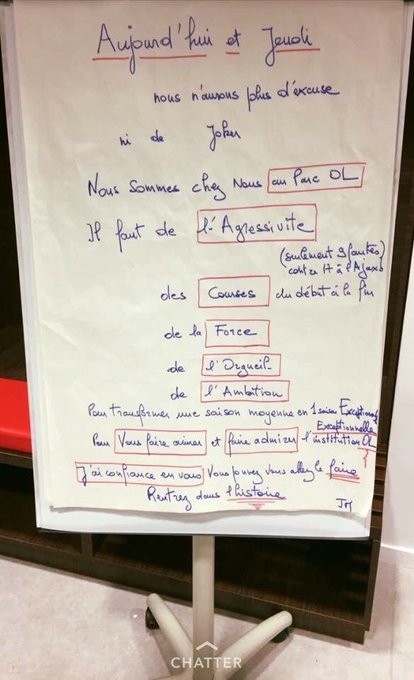 Aujourd'hui et Jeudi
nous n'aurons plus d'excuse
ni de Joker
Nous sommes chez Nous au Parc OL
Il faut de l'Agressivite
(seulement 9 fautes)
contre 17 à l'Ajax
des Courses du début à la fin
de la Force
de l'Orgueil
de l'Ambition
Pour transformer une saison moyenne en 1 saison
Exceptionnelle
Pour Vous faire aimer et faire admirer l'institution OL
J'ai confiance en vous Vous pouvez vous allez le faire
Rentrez dans l'histoire
JM
CHATTER